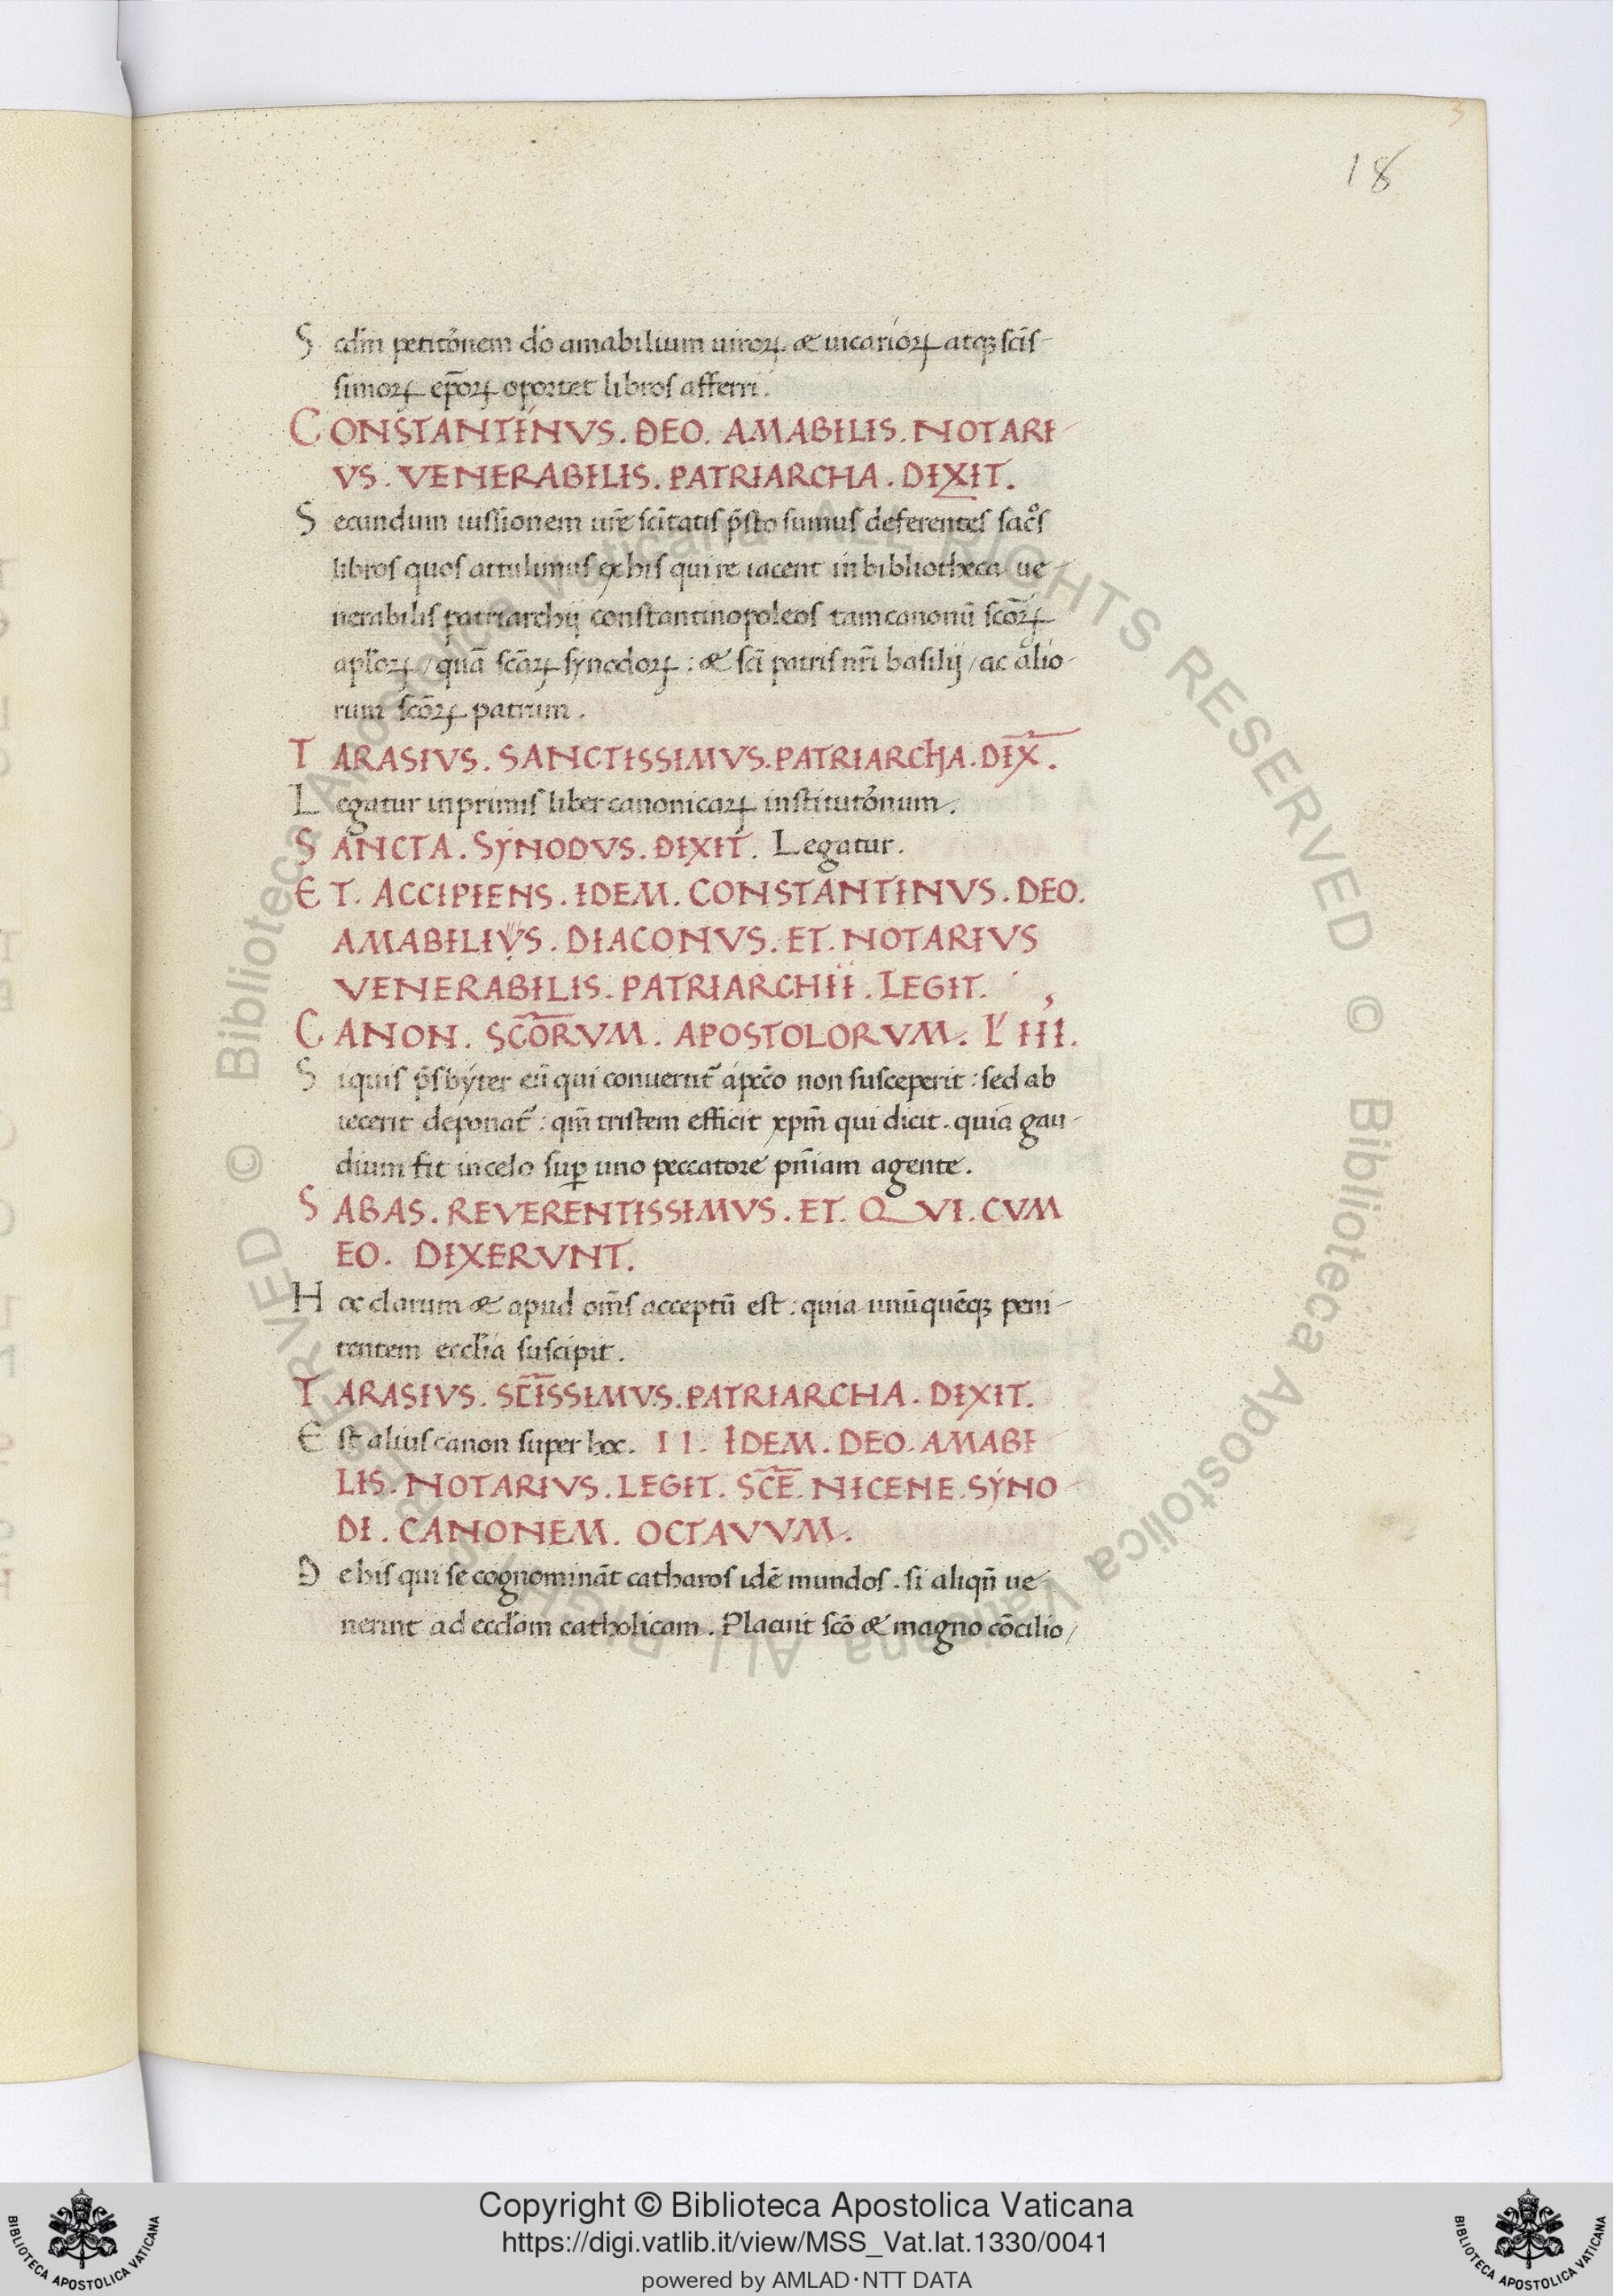 3
18
S cdm̄ petitōnem dō amabilium uiroꝝ & uicarioꝝ atqꝫ scīs-
simoꝝ ep̄oꝝ oportet libros afferri.
CONSTANTINVS. DEO. AMABILIS. NOTARI-
VS. VENERABILIS. PATRIARCHA. DIXIT.
S ecundum iussionem ur̄e sc̄itatis p̄sto sumus deferentes sac̊s
libros quos attulimus ex his qui re iacent in bibliotheca ue-
nerabilis patriarchij constantinopoleos tam canonū sc̄oꝝ
apl̄oꝝ / quā sc̄aꝝ synodoꝝ : & sc̄i patris nr̄i basilij / ac alio-
rum sc̄oꝝ patrum.
TARASIVS. SANCTISSIMVS. PATRIARCHA. DIX̄.
L egatur inprimis liber canonicaꝝ institutōnum.
SANCTA. SYNODVS. DIXIT. Legatur.
ET. ACCIPIENS. IDEM. CONSTANTINVS. DEO.
AMABILIVS. DIACONVS. ET. NOTARIVS
VENERABILIS. PATRIARCHII. LEGIT.
CANON. SC̄ORVM. APOSTOLORVM. L III.
S iquis p̄sbyter eū qui conuertit᷑ a pcc̄o non susceperit : sed ab
iecerit deponat᷑ : qm̄ tristem efficit xpm̄ qui dicit. quia gau-
dium fit in celo suꝑ uno peccatore pn̄iam agente.
SABAS. REVERENTISSIMVS. ET. QVI. CVM
EO. DIXERVNT.
H oc clarum & apud om̄s acceptū est : quia unūquēqꝫ peni-
tentem eccl̄ia suscipit.
TARASIVS. SC̄ISSIMVS. PATRIARCHA. DIXIT.
E st alius canon super hoc. II. IDEM. DEO. AMABI-
LIS. NOTARIVS. LEGIT. SC̄E. NICENE. SYNO-
DI. CANONEM. OCTAVVM.
D e his qui se cognomināt catharos idē mundos. si aliqn̄ ue-
nerint ad eccl̄am catholicam. Placuit sc̄o & magno cōcilio /
© Biblioteca Apostolica Vaticana ALL RIGHTS RESERVED © Biblioteca Apostolica Vaticana ALL RIGHTS RESERVED
Copyright © Biblioteca Apostolica Vaticana
https://digi.vatlib.it/view/MSS_Vat.lat.1330/0041
powered by AMLAD·NTT DATA
BIBLIOTECA APOSTOLICA VATICANA
BIBLIOTECA APOSTOLICA VATICANA